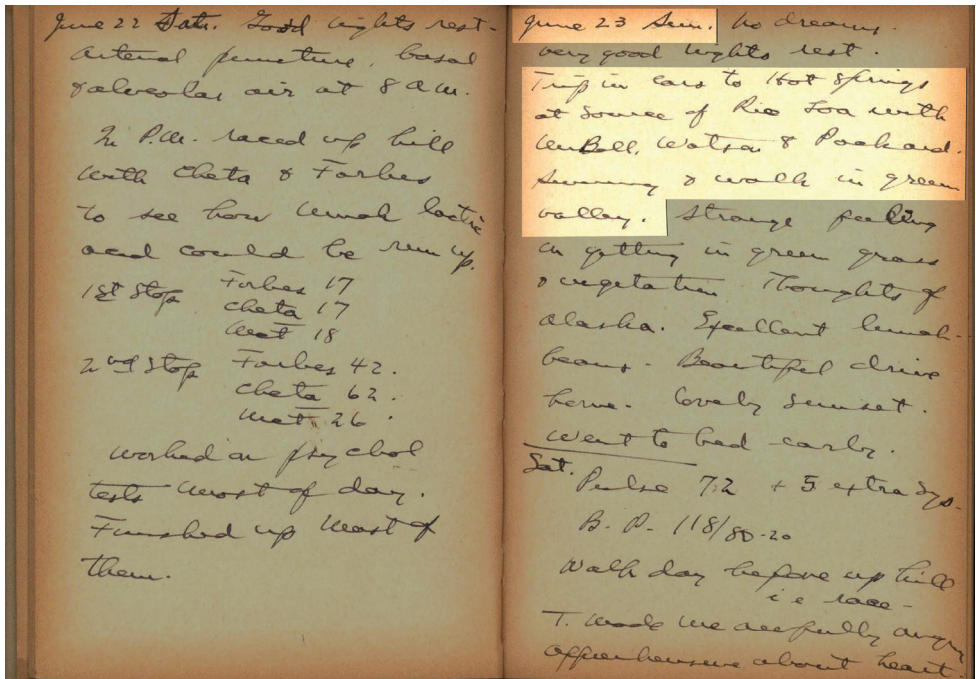 June 22 Sat. Good nights rest -
Arterial puncture, basal
& alveolar air at 8 A.M.
In P.M. raced up hill
with Cheta & Forbes
to see how much lactic
acid could be run up.
1st Stop Forbes 17
Cheta 17
Mat 18
2nd Stop Forbes 42.
Cheta 62.
Mat 26
Worked on psychol
tests most of day.
Finished up most of
them.
June 23 Sun. No dreams.
very good nights rest.
Trip in cars to Hot Springs
at Source of Rio Loa with
Bell, Watson & Packard.
Swimming & walk in green
valley. Strange feeling
in getting in green grass
& vegetation. Thoughts of
Alaska. Excellent lunch -
beans - Beautiful drive
home. Lovely sunset.
Went to bed early.
Sat.
Pulse 72 + 5 extra sys.
B. P. 118/80-20
Walk day before up hill
i e race -
T. made me awfully angry
apprehensive about heart.